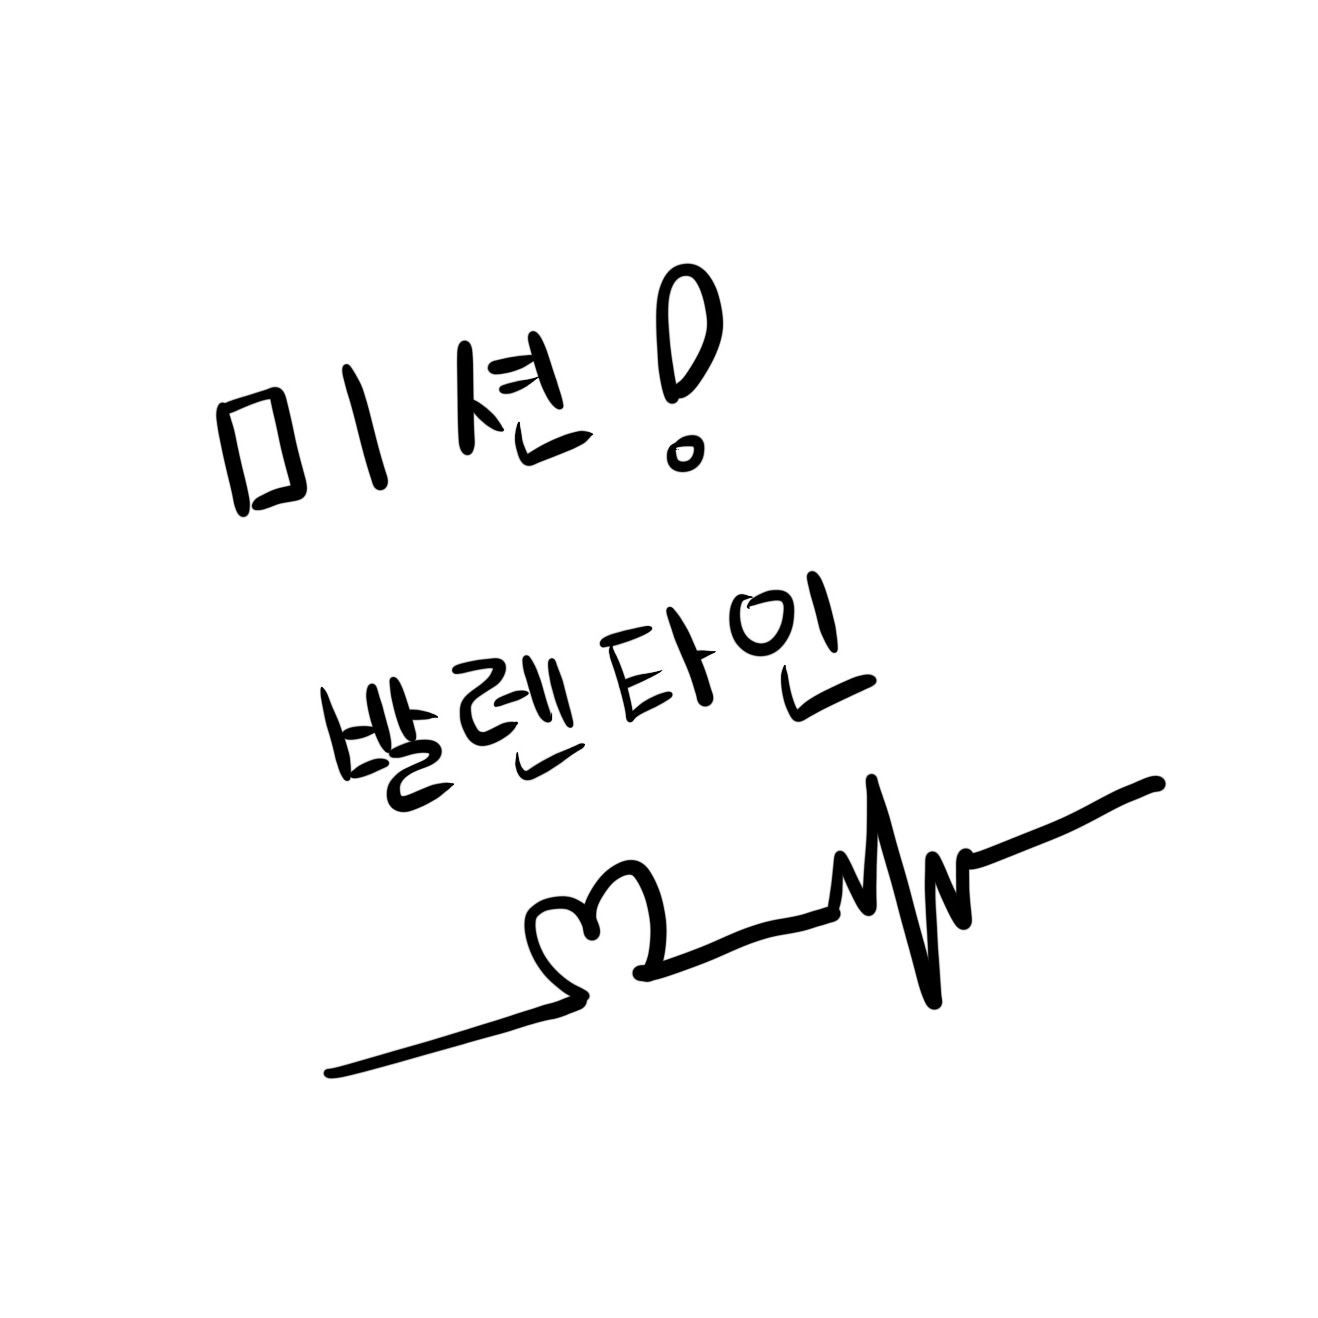 미션!
발렌타인